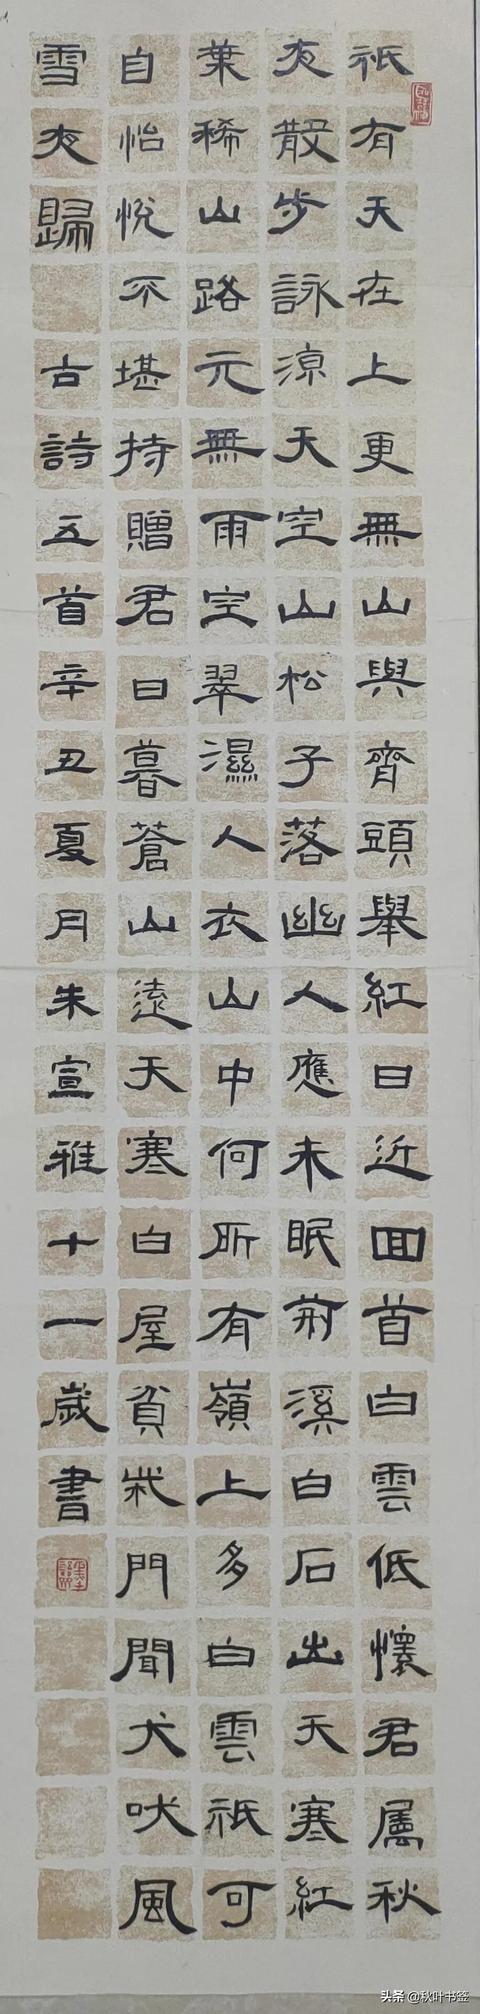 祇有天在上更無山與齊頭舉紅日近回首白雲低懷君屬秋
夜散步詠涼天空山松子落幽人應未眠荊溪白石出天寒紅
葉稀山路元無雨空翠濕人衣山中何所有嶺上多白雲祇可
自怡悅不堪持贈君日暮蒼山遠天寒白屋貧柴門聞犬吠風
雪夜歸
古詩五首辛丑夏月朱宣雅十一歲書
头条 @秋叶书签